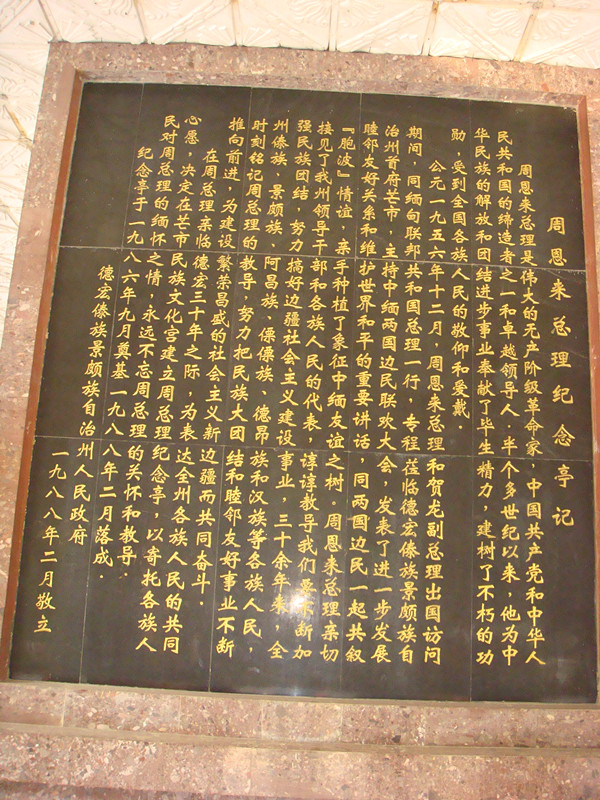 周恩来总理纪念亭记
周恩来总理是伟大的无产阶级革命家，中国共产党和中华人
民共和国的缔造者之一和卓越领导人．半个多世纪以来，他为中
华民族的解放和团结进步事业奉献了毕生精力，建树了不朽的功
勋，受到全国各族人民的敬仰和爱戴．
公元一九五六年十二月，周恩来总理和贺龙副总理出国访问
期间，同缅甸联邦共和国总理一行，专程莅临德宏傣族景颇族自
治州首府芒市，主持中缅两国边民联欢大会，发表了进一步发展
睦邻友好关系和维护世界和平的重要讲话，同两国边民一起共叙
『胞波』情谊，亲手种植了象征中缅友谊之树．周恩来总理亲切
接见了我州领导干部和各族人民的代表，谆谆教导我们要不断加
强民族团结，努力搞好边疆社会主义建设事业，三十余年来，全
州傣族、景颇族、阿昌族、傈僳族、德昂族和汉族等各族人民，
时刻铭记周总理的教导，努力把民族大团结和睦邻友好事业不断
推向前进，为建设繁荣昌盛的社会主义新边疆而共同奋斗．
在周总理亲临德宏三十年之际，为表达全州各族人民的共同
心愿，决定在芒市民族文化宫建立周总理纪念亭，以寄托各族人
民对周总理的缅怀之情，永远不忘周总理的关怀和教导．
纪念亭于一九八六年九月奠基一九八八年二月落成．
德宏傣族景颇族自治州人民政府
一九八八年二月敬立